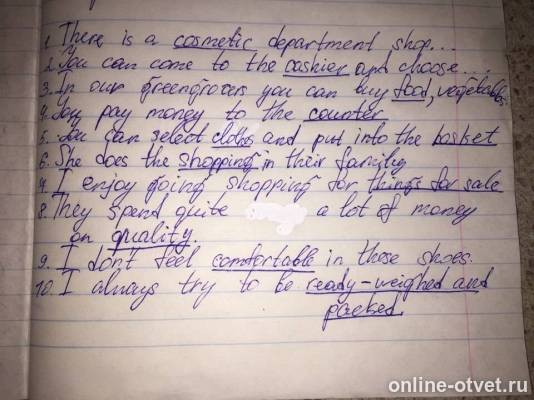 1. There is a cosmetic department shop...
2. You can come to the cashier and choose....
3. In our greengrovers you can buy food, vegetables.
4. You pay money to the counter
5. You can select cloths and put into the basket
6. She does the shopping in their family
7. I enjoy going shopping for things for sale
8. They spend quite a lot of money
on quality.
9. I don't feel comfortable in those shoes.
10. I always try to be ready-weighed and
packed.
online-otvet.ru